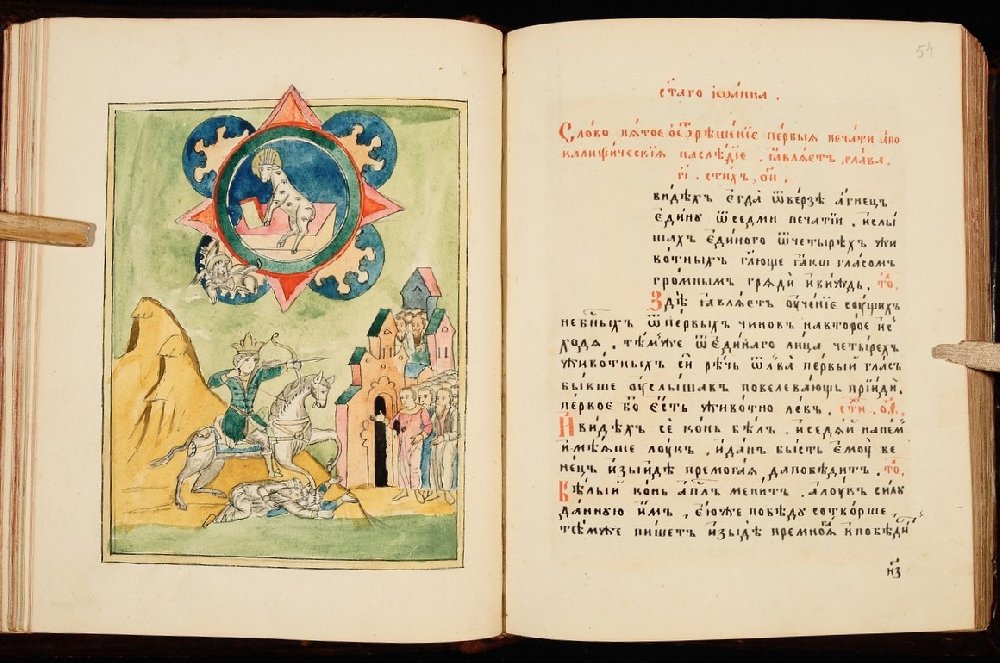 54
ст҃аго іѡа́нна .
Сло́во пѧ́тое ѿбрѣше́нїе пе́рвыѧ печа́ти апо
калипси́ческїѧ наслѣ́дїе , ꙗ҆влѧ́етъ , глава̀
ст҃и́хъ , ои .
ви́дѣхъ є҆гда̀ ѿве́рзе а҆́гнецъ
є҆ди́нꙋ ѿ седмѝ печа́тїй , и҆ слы́
шахъ є҆ди́наго ѿ четы́рѣхъ жи
во́тныхъ гл҃юще ꙗ҆́кѡ гла́сомъ
гро́мнымъ грѧдѝ и҆ ви́ждь , то́ .
Здѣ̀ ꙗ҆влѧ́етъ ᲂу҆че́нїе сꙋ́щихъ
нб҃ныхъ ѿ пе́рвыхъ чино́в на второ́е и҆с
ходѧ̀ , тѣ́мже ѿ є҆ди́наго лица̀ четы́рех
живо́тныхъ си́й рѣ́чь ѿ лва̀ пе́рвый гла́съ
бы́вше ᲂу҆слы́шавъ повелева́ющъ прїидѝ
пе́рвое бо є҆́сть живо́тно ле́въ .
И҆ ви́дѣхъ се ко́нь бѣ́лъ , и҆ седѧ́й на не́м
и҆мѣ́ѧше лꙋ́къ , и҆ да́нъ бы́сть є҆мꙋ̀ ве
не́цъ и҆ изы́йде премога́ѧ да побѣди́тъ . то́ .
Бѣ́лый ко́нь а҆пⷭ҇лъ мени́тъ , а҆ лꙋ́къ си́лꙋ
да́ннꙋю и҆̀мъ , є҆ю́же побѣ́дꙋ сотво́рше ,
тѣ́мже пи́шетъ и҆ зы́де и҆ побѣди́